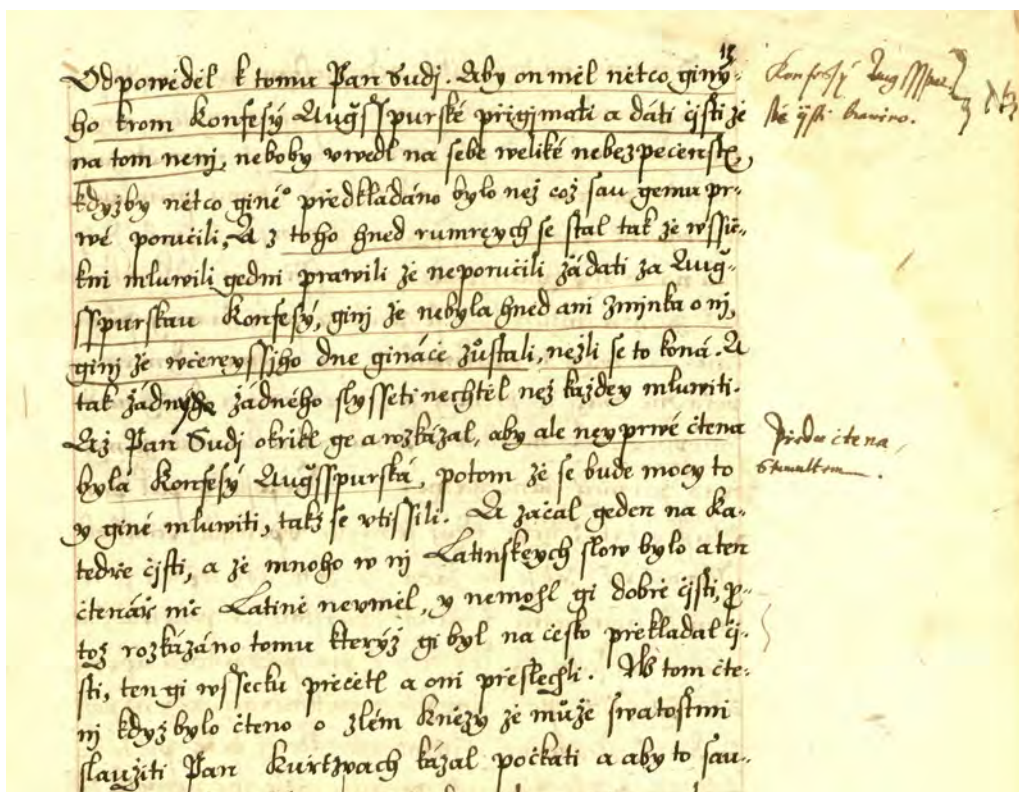 13
Odpowěděl k tomu Pan Sudj. Aby on měl nětco giný-
ho krom Konfesý Augsspurské přigjmati a dáti čjsti že
na tom nenj, neboby vwedl na sebe weliké nebezpečenst.,
kdyžby nětco giné° předkládáno bylo než což sau gemu pr-
wé poručili, A z toho hned rumreych se stal tak že wssic-
kni mluwili gedni prawili že neporučili žádati za Aug-
sspurskau Konfesý, ginj že nebyla hned ani zmjnka o nj,
ginj že wčereyssjho dne gináče zůstali, nežli se to koná. A
tak žádný žádného slysseti nechtěl než každey mluwiti.
Až Pan Sudj okřikl ge a rozkázal, aby ale neyprwé čtena
byla Konfesý Augsspurská, potom že se bude mocy to
y giné mluwiti, takž se vtissili. A začal geden na Ka-
tedře čjsti, a že mnoho w nj Latinskeych slow bylo a ten
čtenář nic Latině nevměl, y nemohl gi dobře čjsti, p-
tož rozkázáno tomu kterýž gi byl na česko překládal čj-
sti, ten gi wssecku přečetl a oni přeslechli. W tom čte-
nj když bylo čteno o zlém Kněžy že může swátostmi
slaužiti Pan Kurtzwach kázal počkati a aby to sau-
Konfessý Augssspur-
ské čjsti
Předse čtena,